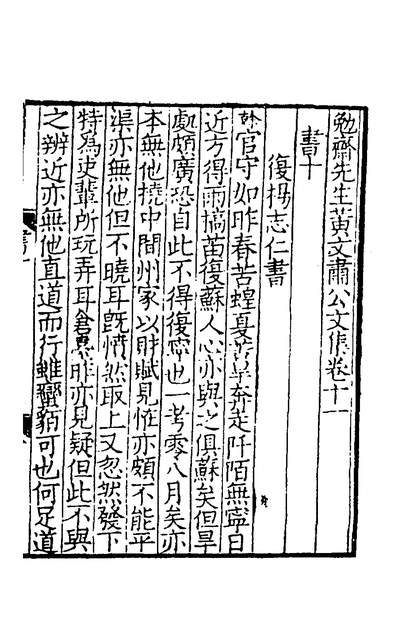 勉齋先生黃文肅公文集卷十一
書十
復楊志仁書
榦官守如昨春苦蝗夏苦旱奔走阡陌無寧日
近方得雨槁苗復蘇人心亦與之俱蘇矣但旱
處頗廣恐自此不得復寧也一考零八月矣亦
本無他撓中間州家以財賦見恠亦頗不能平
渠亦無他但不曉耳旣憤然取上又忽然發下
特為吏輩所玩弄耳倉臺昨亦見疑但此不與
之辨近亦無他直道而行雖蠻貊可也何足道